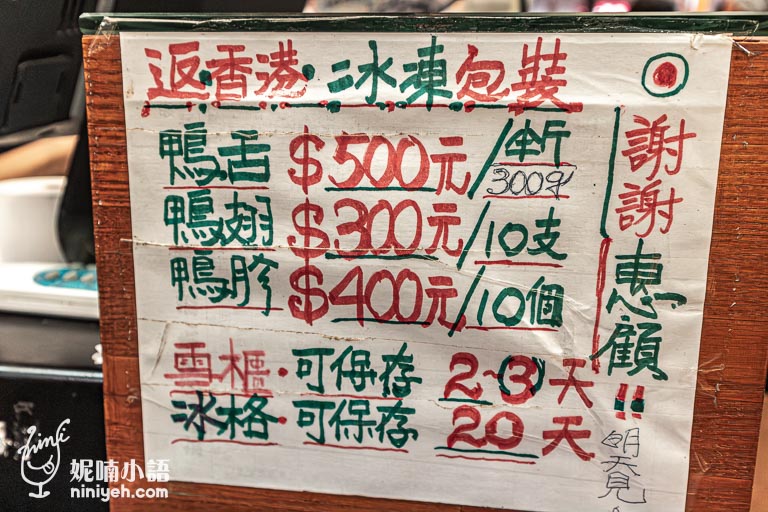 返·香港·冰凍包裝
鴨舌 $500元/半斤
300g
鴨翅 $300元/10支
鴨胗 $400元/10個
雪櫃·可保存 2~3天
冰格·可保存 20天
謝謝
惠顧!!
明天見
妮喃小語
niniyeh.com